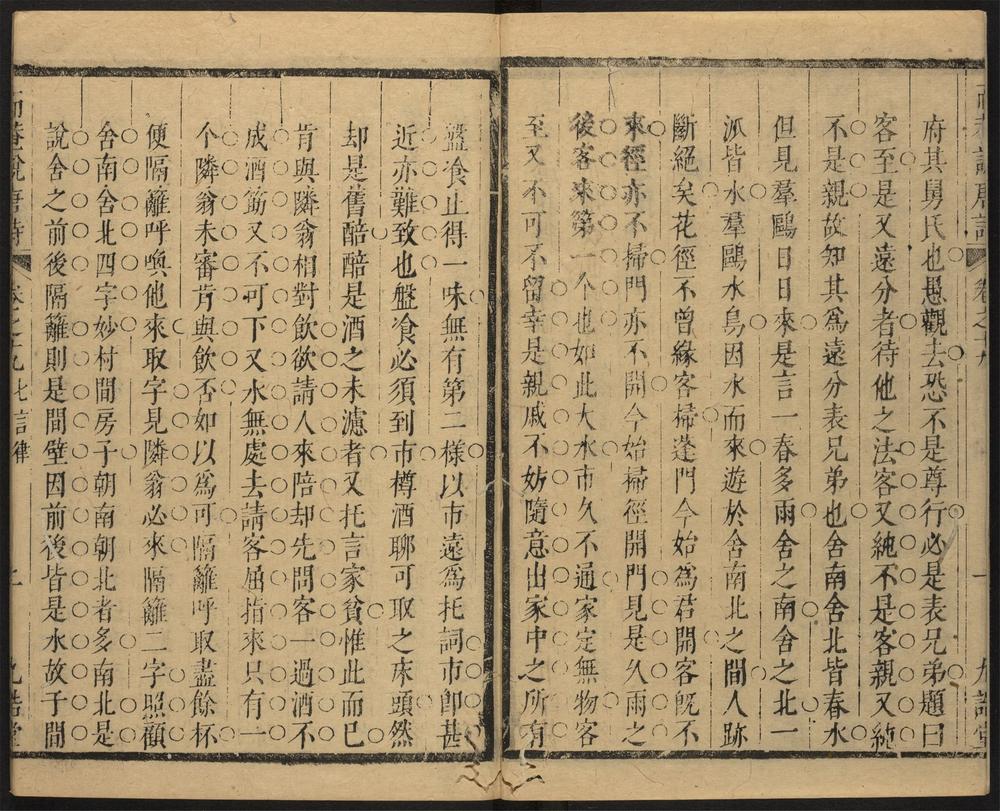 府其舅氏也愚觀去恐不是尊行必是表兄弟題曰
客至是又遠分者待他之法客又純不是客親又純
不是親故知其爲遠分表兄弟也舍南舍北皆春水
但見羣鷗日日來是言一春多雨舍之南舍之北一
派皆水羣鷗水鳥因水而來遊於舍南北之間人跡
斷絕矣花徑不曾緣客掃蓬門今始爲君開客旣不
來徑亦不掃門亦不開今始掃徑開門見是久雨之
後客來第一个也如此大水市久不通家定無物客
至又不可不留幸是親戚不妨隨意出家中之所有
盤食止得一味無有第二樣以市遠爲托詞市卽甚
近亦難致也盤飡必須到市樽酒聊可取之床頭然
却是舊醅醅是酒之未濾者又托言家貧惟此而已
肯與隣翁相對飲欲請人來陪却先問客一過酒不
成酒筯又不可下又水無處去請客屈指來只有一
个隣翁未審肯與飲否如以爲可隔籬呼取盡餘杯
便隔籬呼喚他來取字見隣翁必來隔籬二字照顧
舍南舍北四字妙村間房子朝南朝北者多南北是
說舍之前後隔籬則是間壁因前後皆是水故于間
而菴說唐詩
卷之十九七言律
二
九誥堂